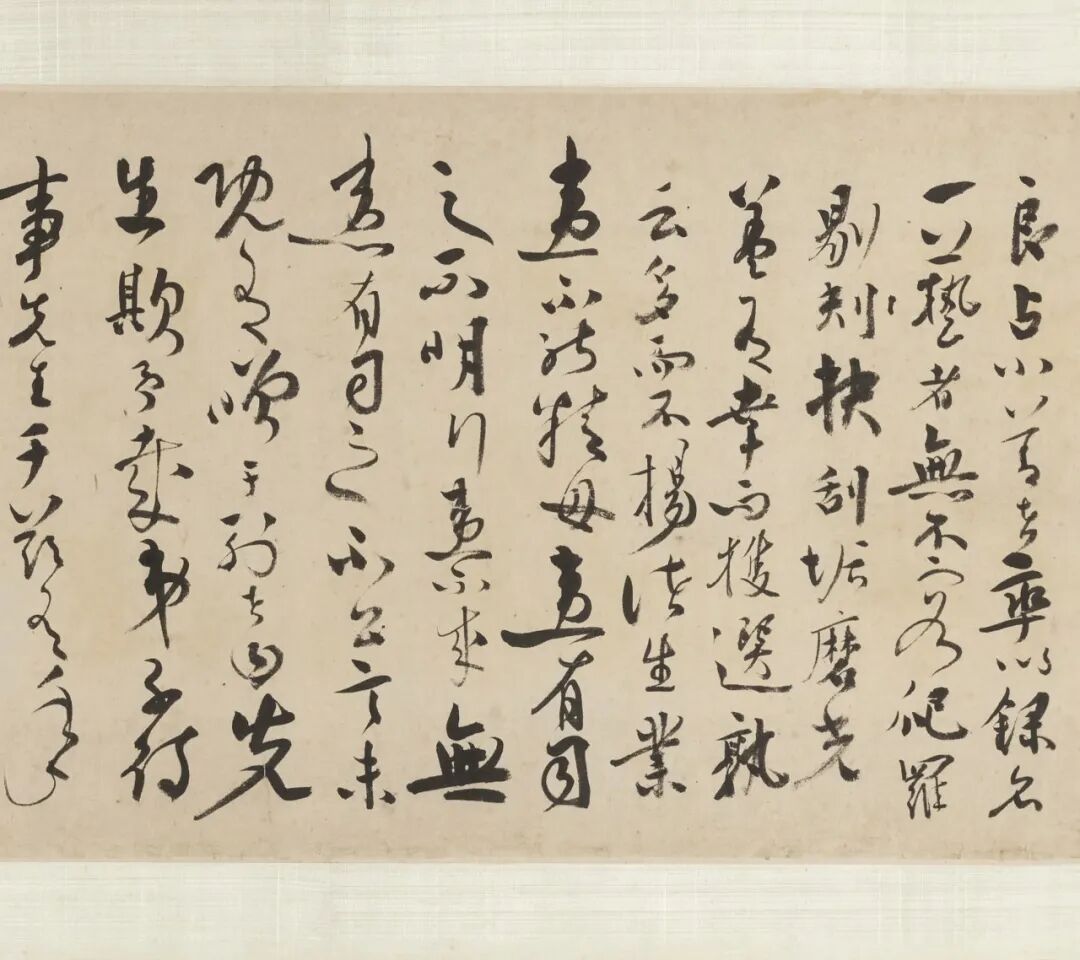 良占小善者率以録名
一藝者無不庸爬羅
剔刔抉刮垢磨光
蓋有幸而獲選孰
云多而不揚諸生業
患不能精毋患有司
之不明行患不成無
患有司之不公言未
既有咲于列者曰先
生欺予哉弟子侍
事先生于茲有年矣